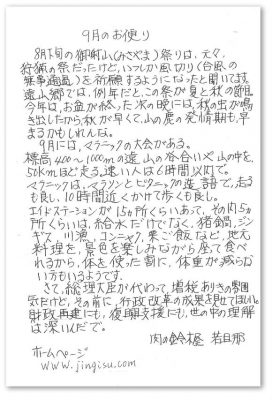 9月のお便り
8月下旬の御射山(みさやま)祭りは、元々、
狩猟の祭だったけど、いつしか風切り(台風の
無事通過)を祈願するようになったと聞いてます。
遠山郷では、例年だと、この祭が夏と秋の節目。
今年は、お盆が終った次の晩には、秋の虫が鳴
き出したから、秋が早くて、山の鹿の発情期も、早
まるかもしれんな。
9月には、マラニックの大会がある。
標高400〜1000mの遠山の谷合いや山の中を、
50kmほど走る。速い人は6時間以内で。
マラニックは、マラソンとピクニックの造語で、走る
も良し、10時間近くかけて歩くも良し。
エイドステーションが15ヶ所くらいあって、その内5ヶ
所くらいは、給水だけでなく、猪鍋、ジン
ギス、川漁、コンニャク、栗ご飯など、地元
料理を、景色を楽しみながら座って食べ
れるから、体を使った割に、体重が減らな
い方もいるようです。
さて、総理大臣が代わって、増税ありきの雰囲
気だけど、その前に、行政改革の成果を見せてほしい。
財政再建にも、復興支援にも、世の中の理解
は深いんだで。
肉の鈴木屋 若旦那
ホームページ
www.jingisu.com